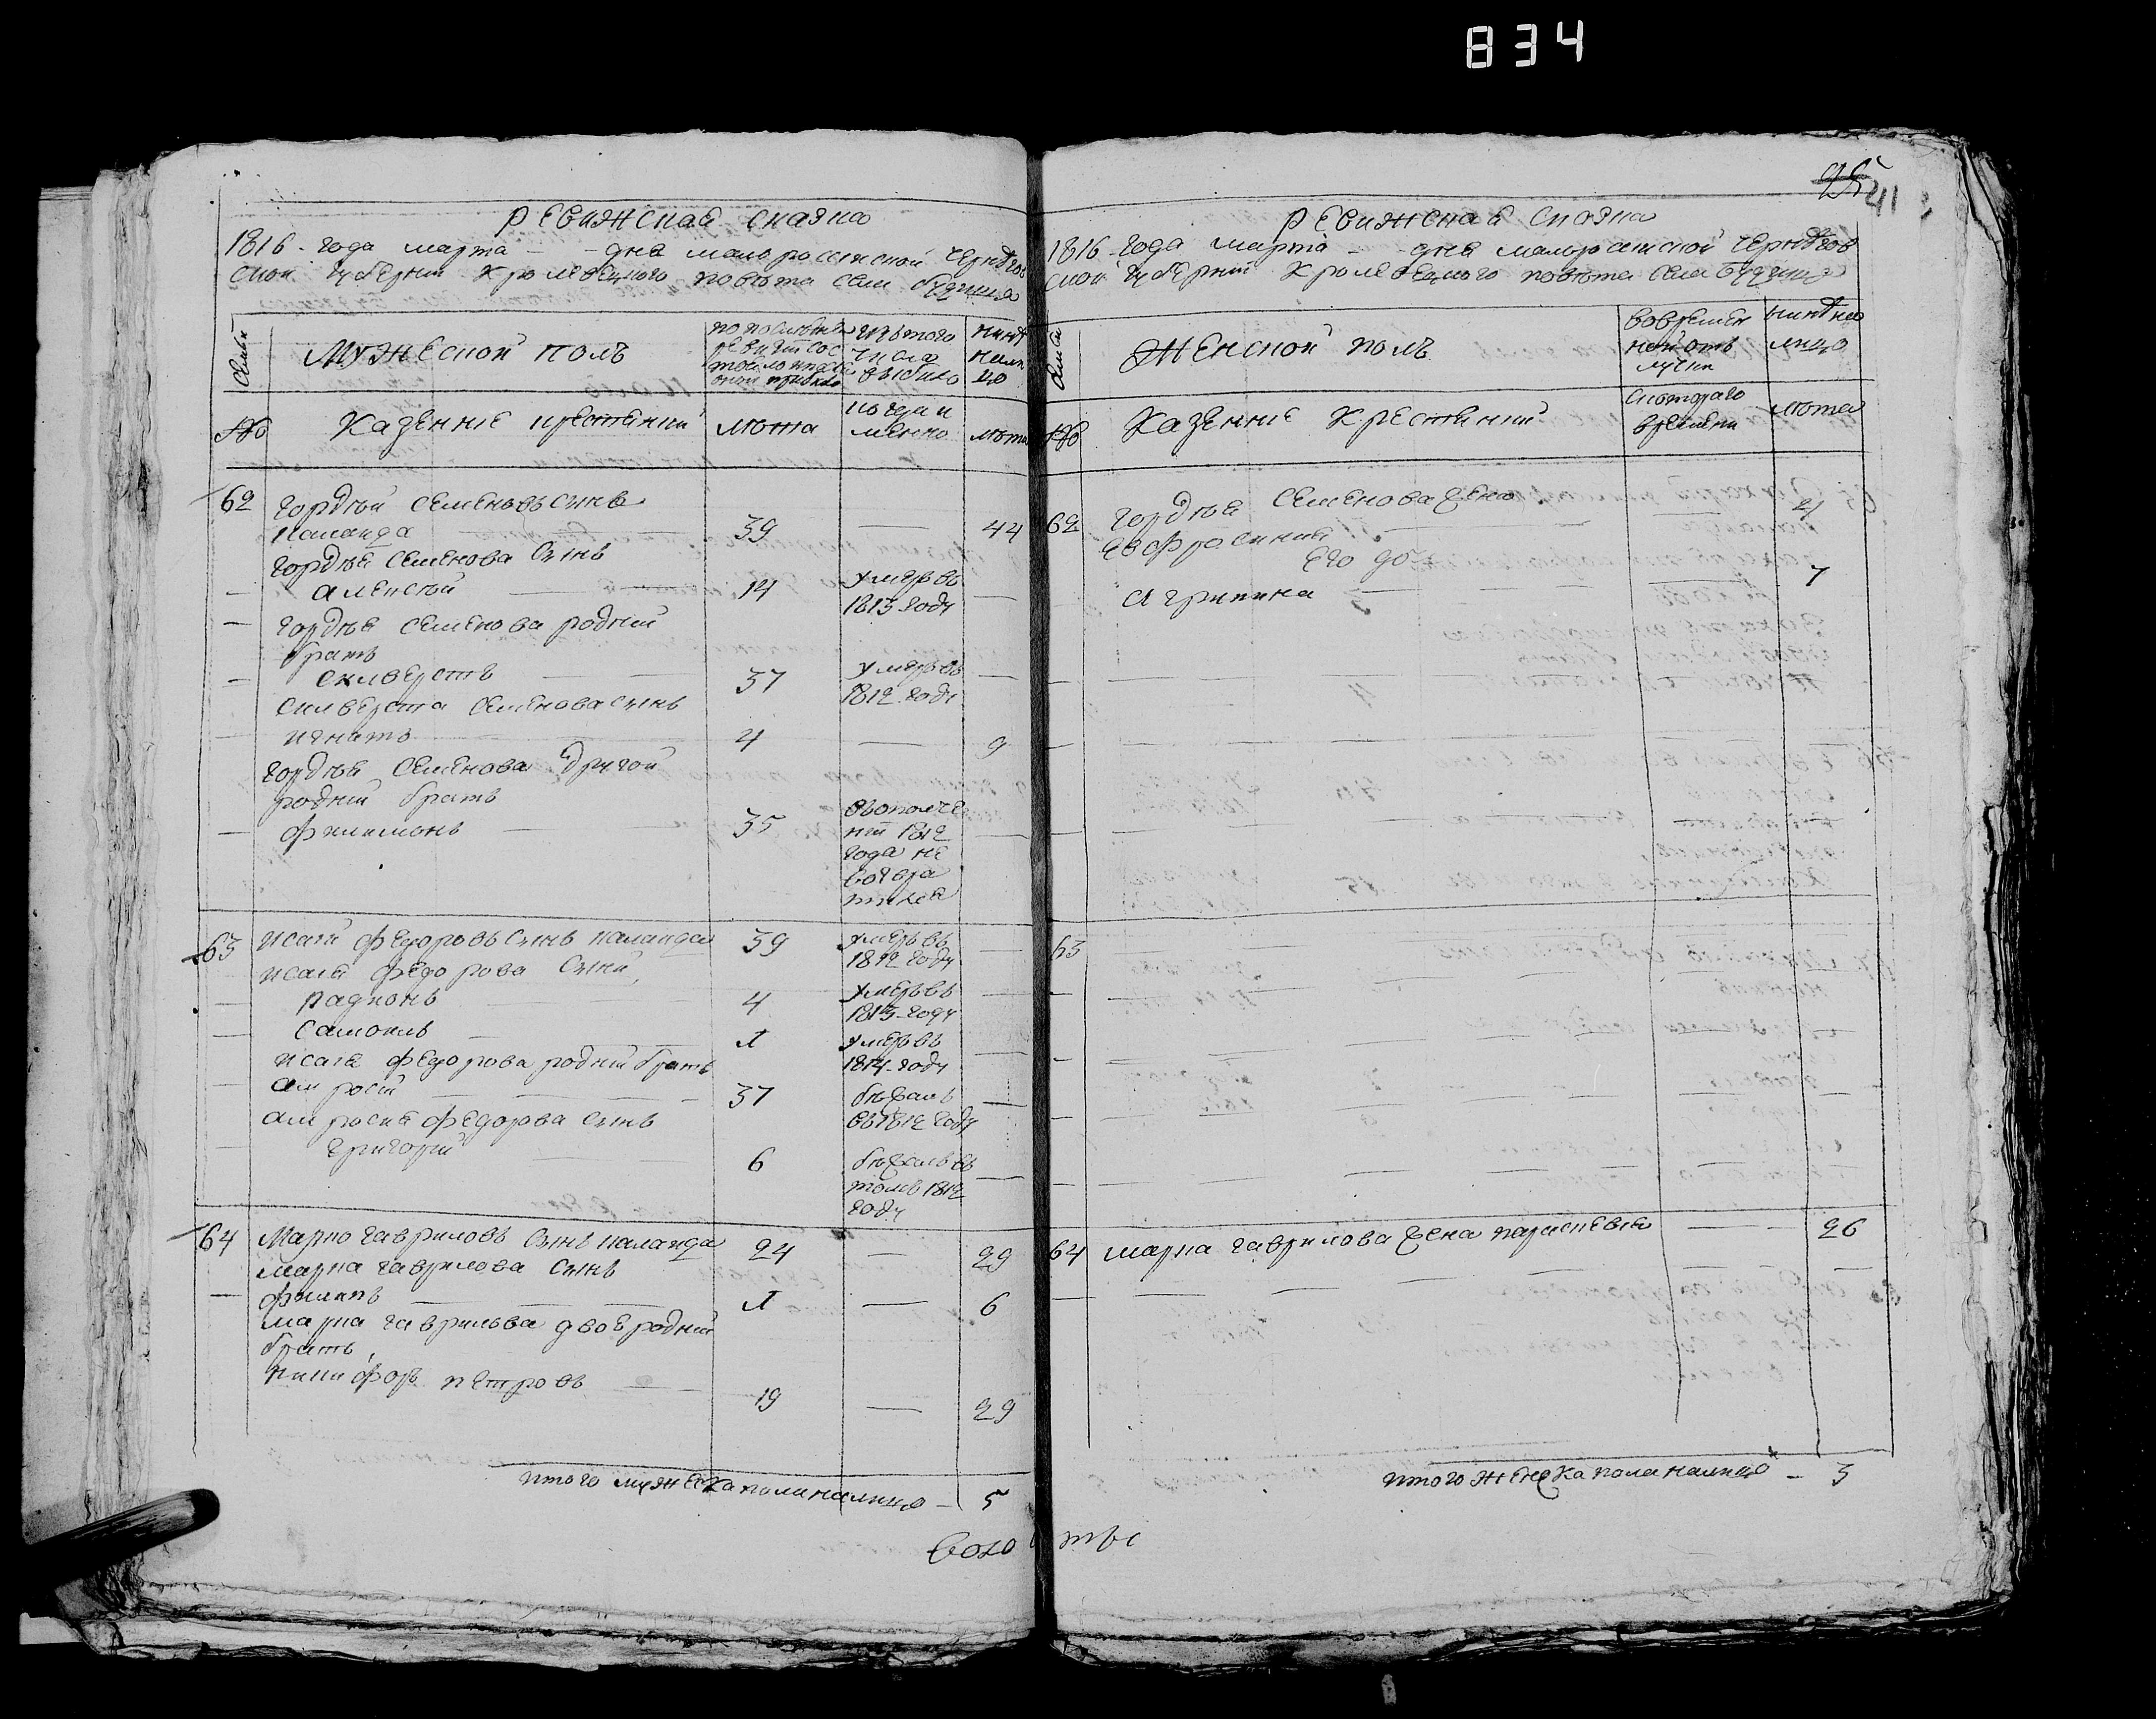 834
25
41
Ревижская сказка
1816 года марта - - дня малоросииской Чернѣгов
ской губернии Кролевецкого повѣта села Будища
Семьи
Мужеской полъ
по послѣдней
ревизии сос
тояло и после
оной прибыло
изъ того
числа
выбило
нинѣ
нали
цо
№
Казеннiе крестянии
лѣта
когда и
мѣнно
лѣта
62
Гордѣй Семеновъ синъ
Каланда
39
44
Гордѣя Семенова синъ
Алексѣй
14
умеръ въ
1813 году
Гордѣя Семенова роднии
братъ
Силверстъ
37
умеръ въ
1812 году
Силверста Семенова синъ
Игнатъ
4
9
Гордѣя Семенова другой
роднии братъ
Филимонъ
35
въ ополче
нии 1812
года не
возвра
тился
63
Исаи Федоровъ синъ Каланда
39
умеръ въ
1812 году
Исаія Федорова сини
Радионъ
4
умеръ въ
1813 году
Самоилъ
1
умеръ въ
1814 году
Исаія Федорова роднии братъ
Амросии
37
бѣжалъ
въ 1812 году
Амросия Федорова синъ
Григории
6
бѣжалъ въ
томъ 1812
году
64
Марко Гавриловъ синъ Каланда
24
29
Марка Гаврилова синъ
Филипъ
1
6
Марка Гаврильва двоеродній
братъ
Никифоръ Петровъ
19
29
Итого мужеска пола налицо - 5
Ревижская сказка
1816 года марта - - дня малоросииской Чернѣгов
ской губернии Кролевецкого повѣта села Будища
Семьи
Женской полъ
во времен
ной отъ
лучки
нинѣ на
лицо
№
Казеннiе крестянии
с котораго
времени
лѣта
62
Гордѣя Семенова жена
Евфросиния
41
Его до
Агрипина
7
63
64
Марка Гаврилова жена Параскевия
26
Итого женска пола налицо - 3